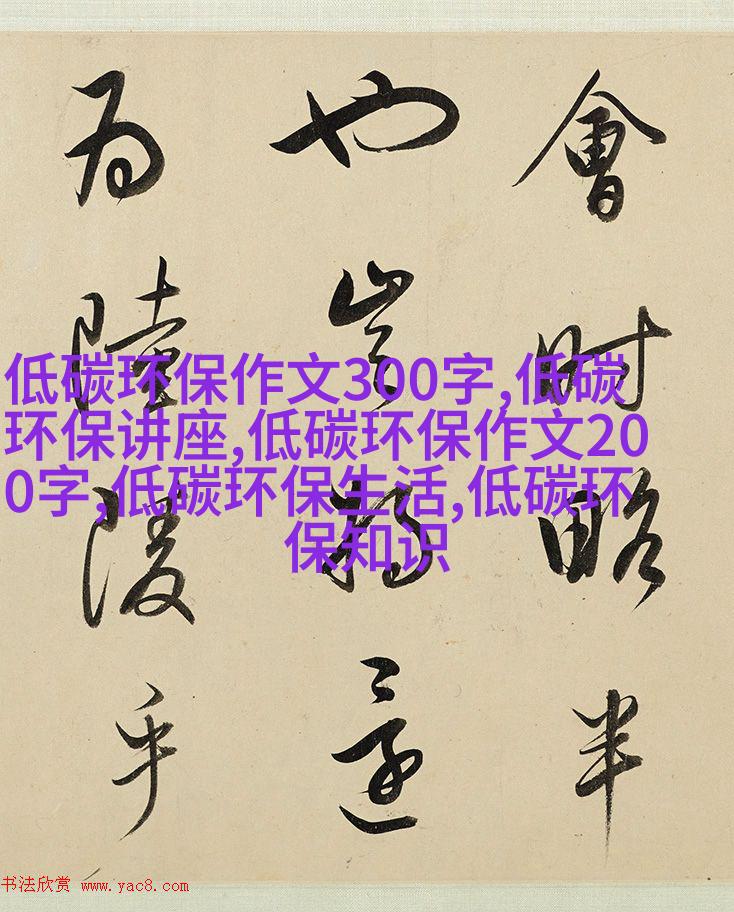 會時略半
也豈將還
為陸陵乎
低碳环保作文300字,低碳
环保讲座,低碳环保作文20
0字,低碳环保生活,低碳环
保知识
书法欣赏 www.yac8.com